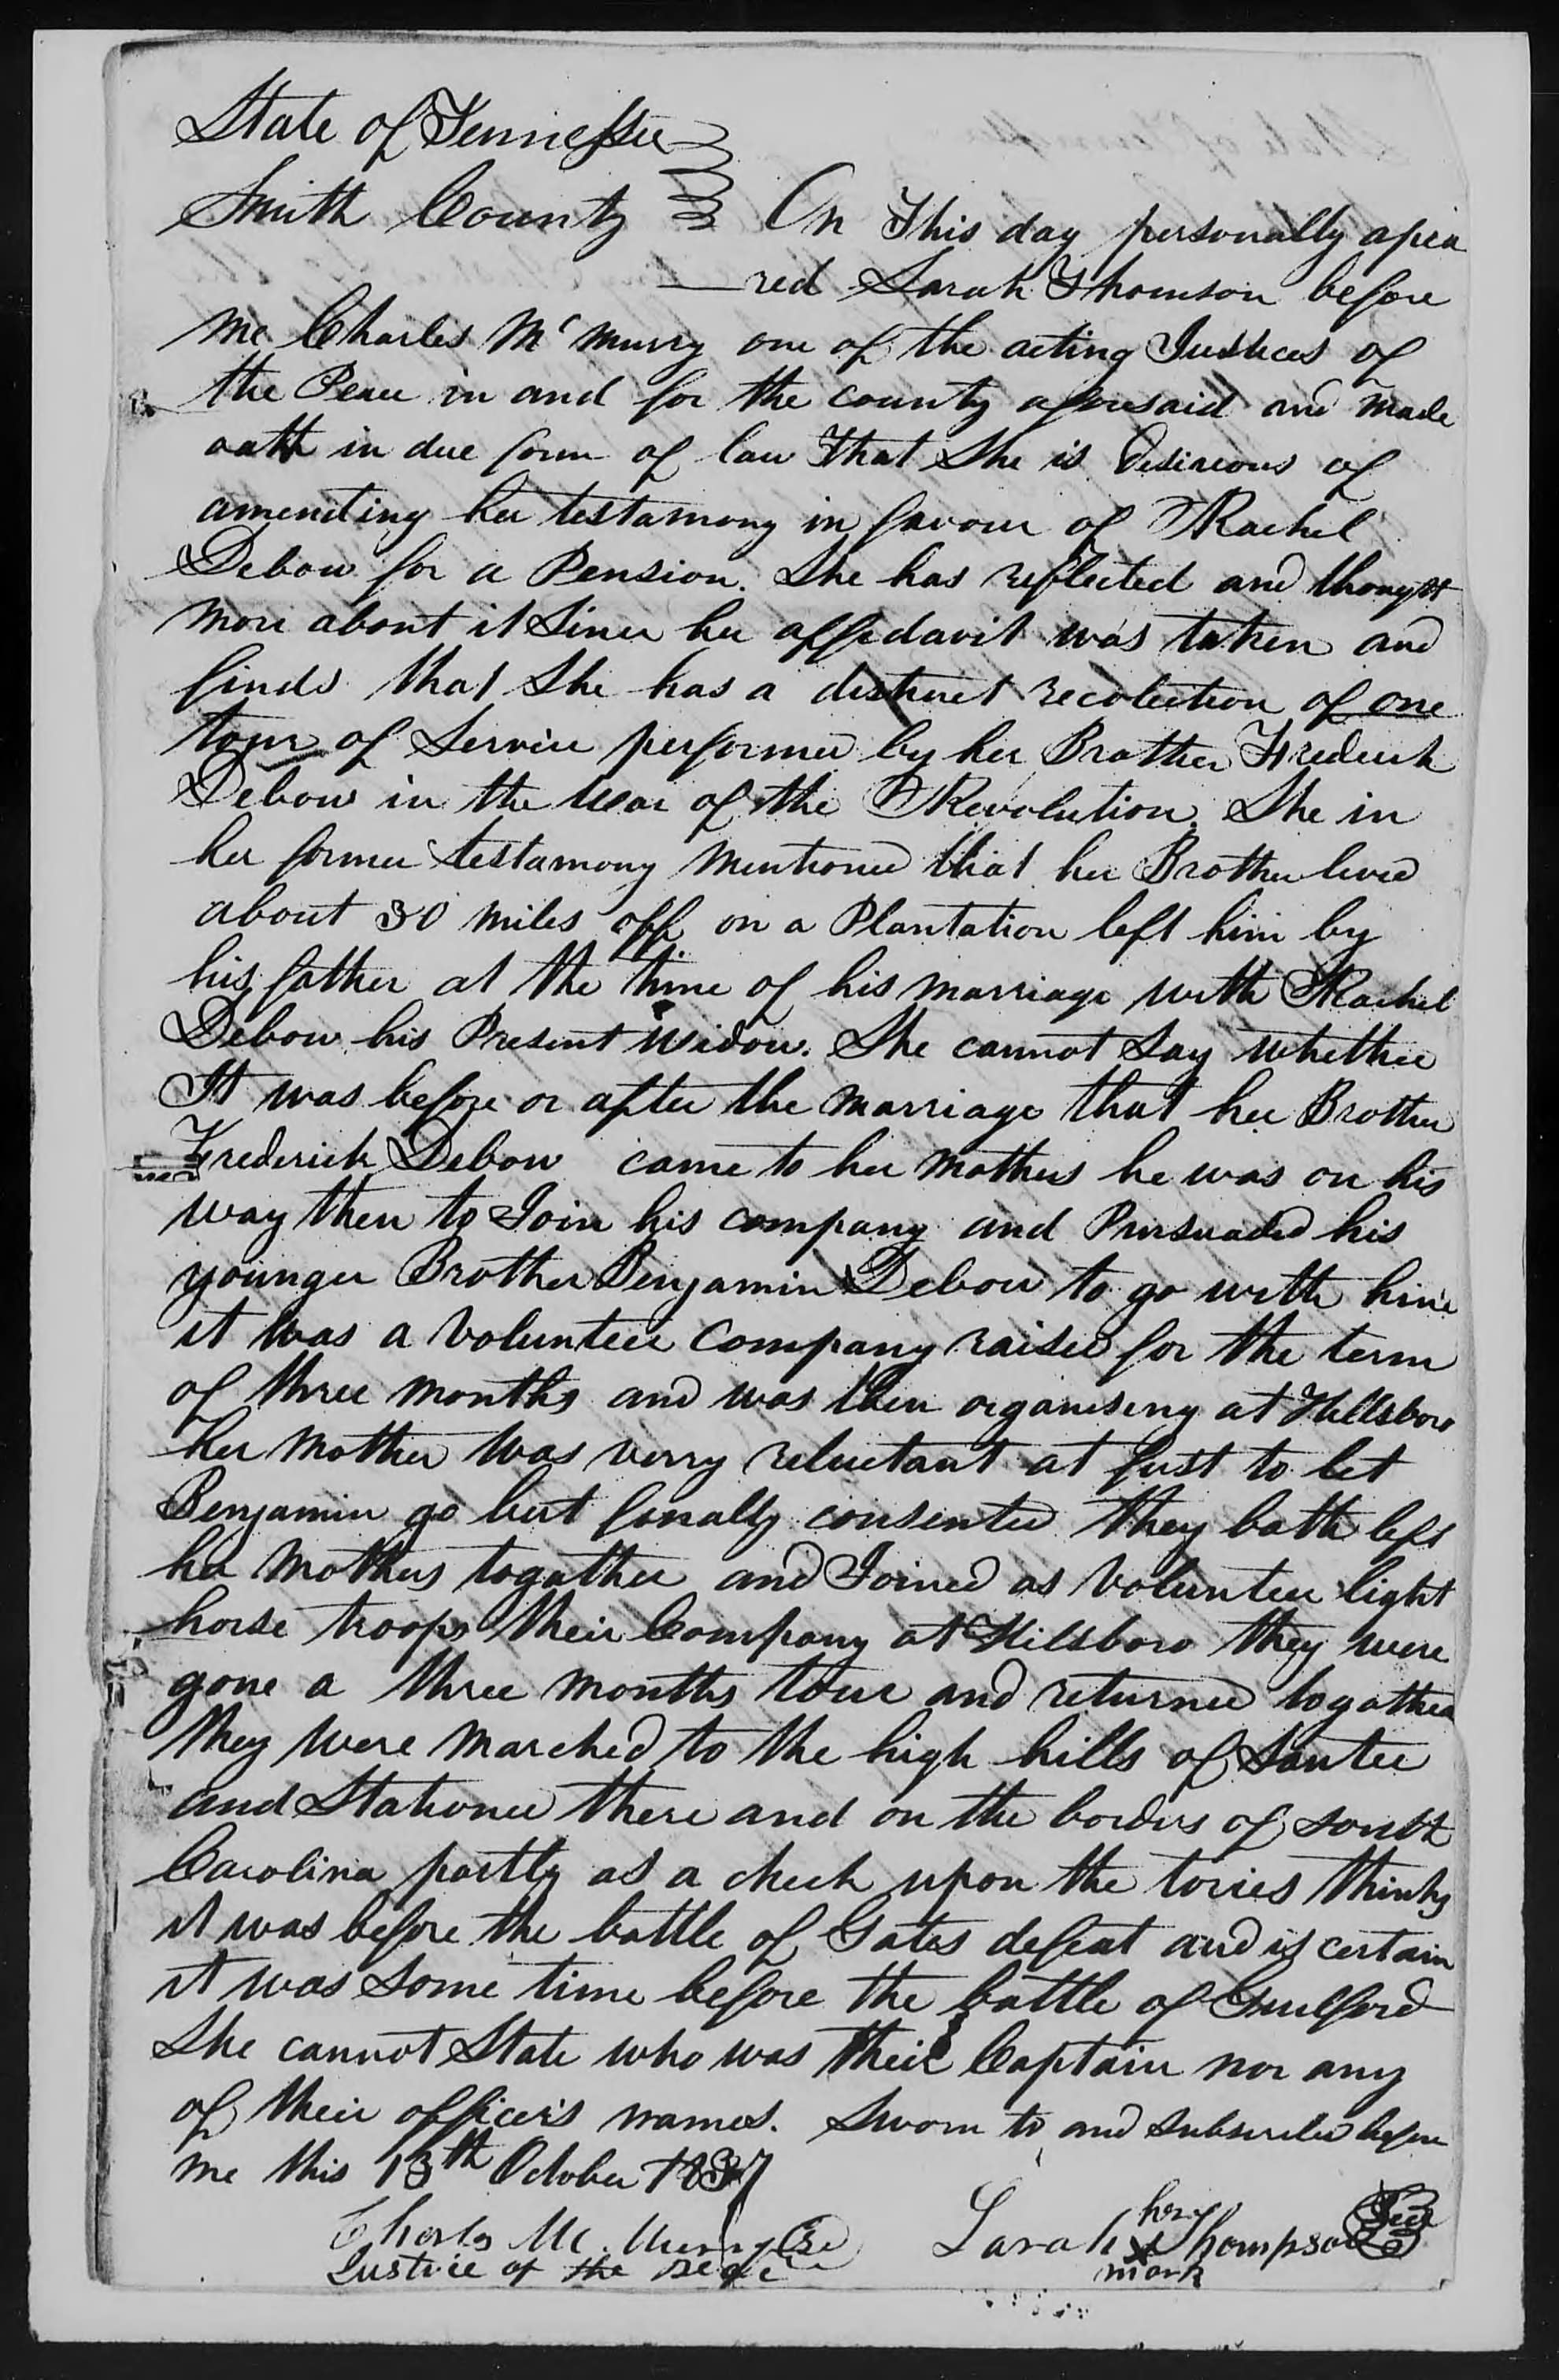 State of Tennessee
Smith County On This day personally apea
red Sarah Thomson before
me Charles Mc murry one of the acting Justices of
the Peace in and for the county aforesaid and made
oath in due form of law that She is desireous of
amending her testamony in favour of Rachel
Debow for a Pension. She has reflected and thought
more about it Since her affidavit was taken and
finds that She has a distinct recolection of one
tour of Service performed by her Brother Frederick
Debow in the War of the Revolution. She in
her former testamony mentioned that her Brother lived
about 30 miles off on a Plantation left him by
his father at the time of his marriage with Rachel
Debow his Present Widow. She cannot Say whether
It was before or after the marriage that her Brother
Frederick Debow came to her mothers he was on his
way then to Join his company and Pursuaded his
younger Brother Benjamin Debow to go with him
it was a Volunteer Company raised for the term
of three months and was then organising at Hillsboro
her mother was verry reluctant at first to let
Benjamin go but finally consented they both left
her mothers togather and Joined as Volunteer light
horse troops their Company at Hilsboro they were
gone a three months tour and returned togather
they were marched to the high hills of Santee
and Stationed there and on the borders of South
Carolina partly as a check upon the tories thinks
it was before the battle of Gates defeat and is certain
it was Some time before the battle of Guilford
She cannot State who was their Captain nor any
of their officers names. Sworn to and Subscribed before
me this 13th October 1837
Charles Mc. Murry Sarah her x mark Thompson Seal
Justice of the peace